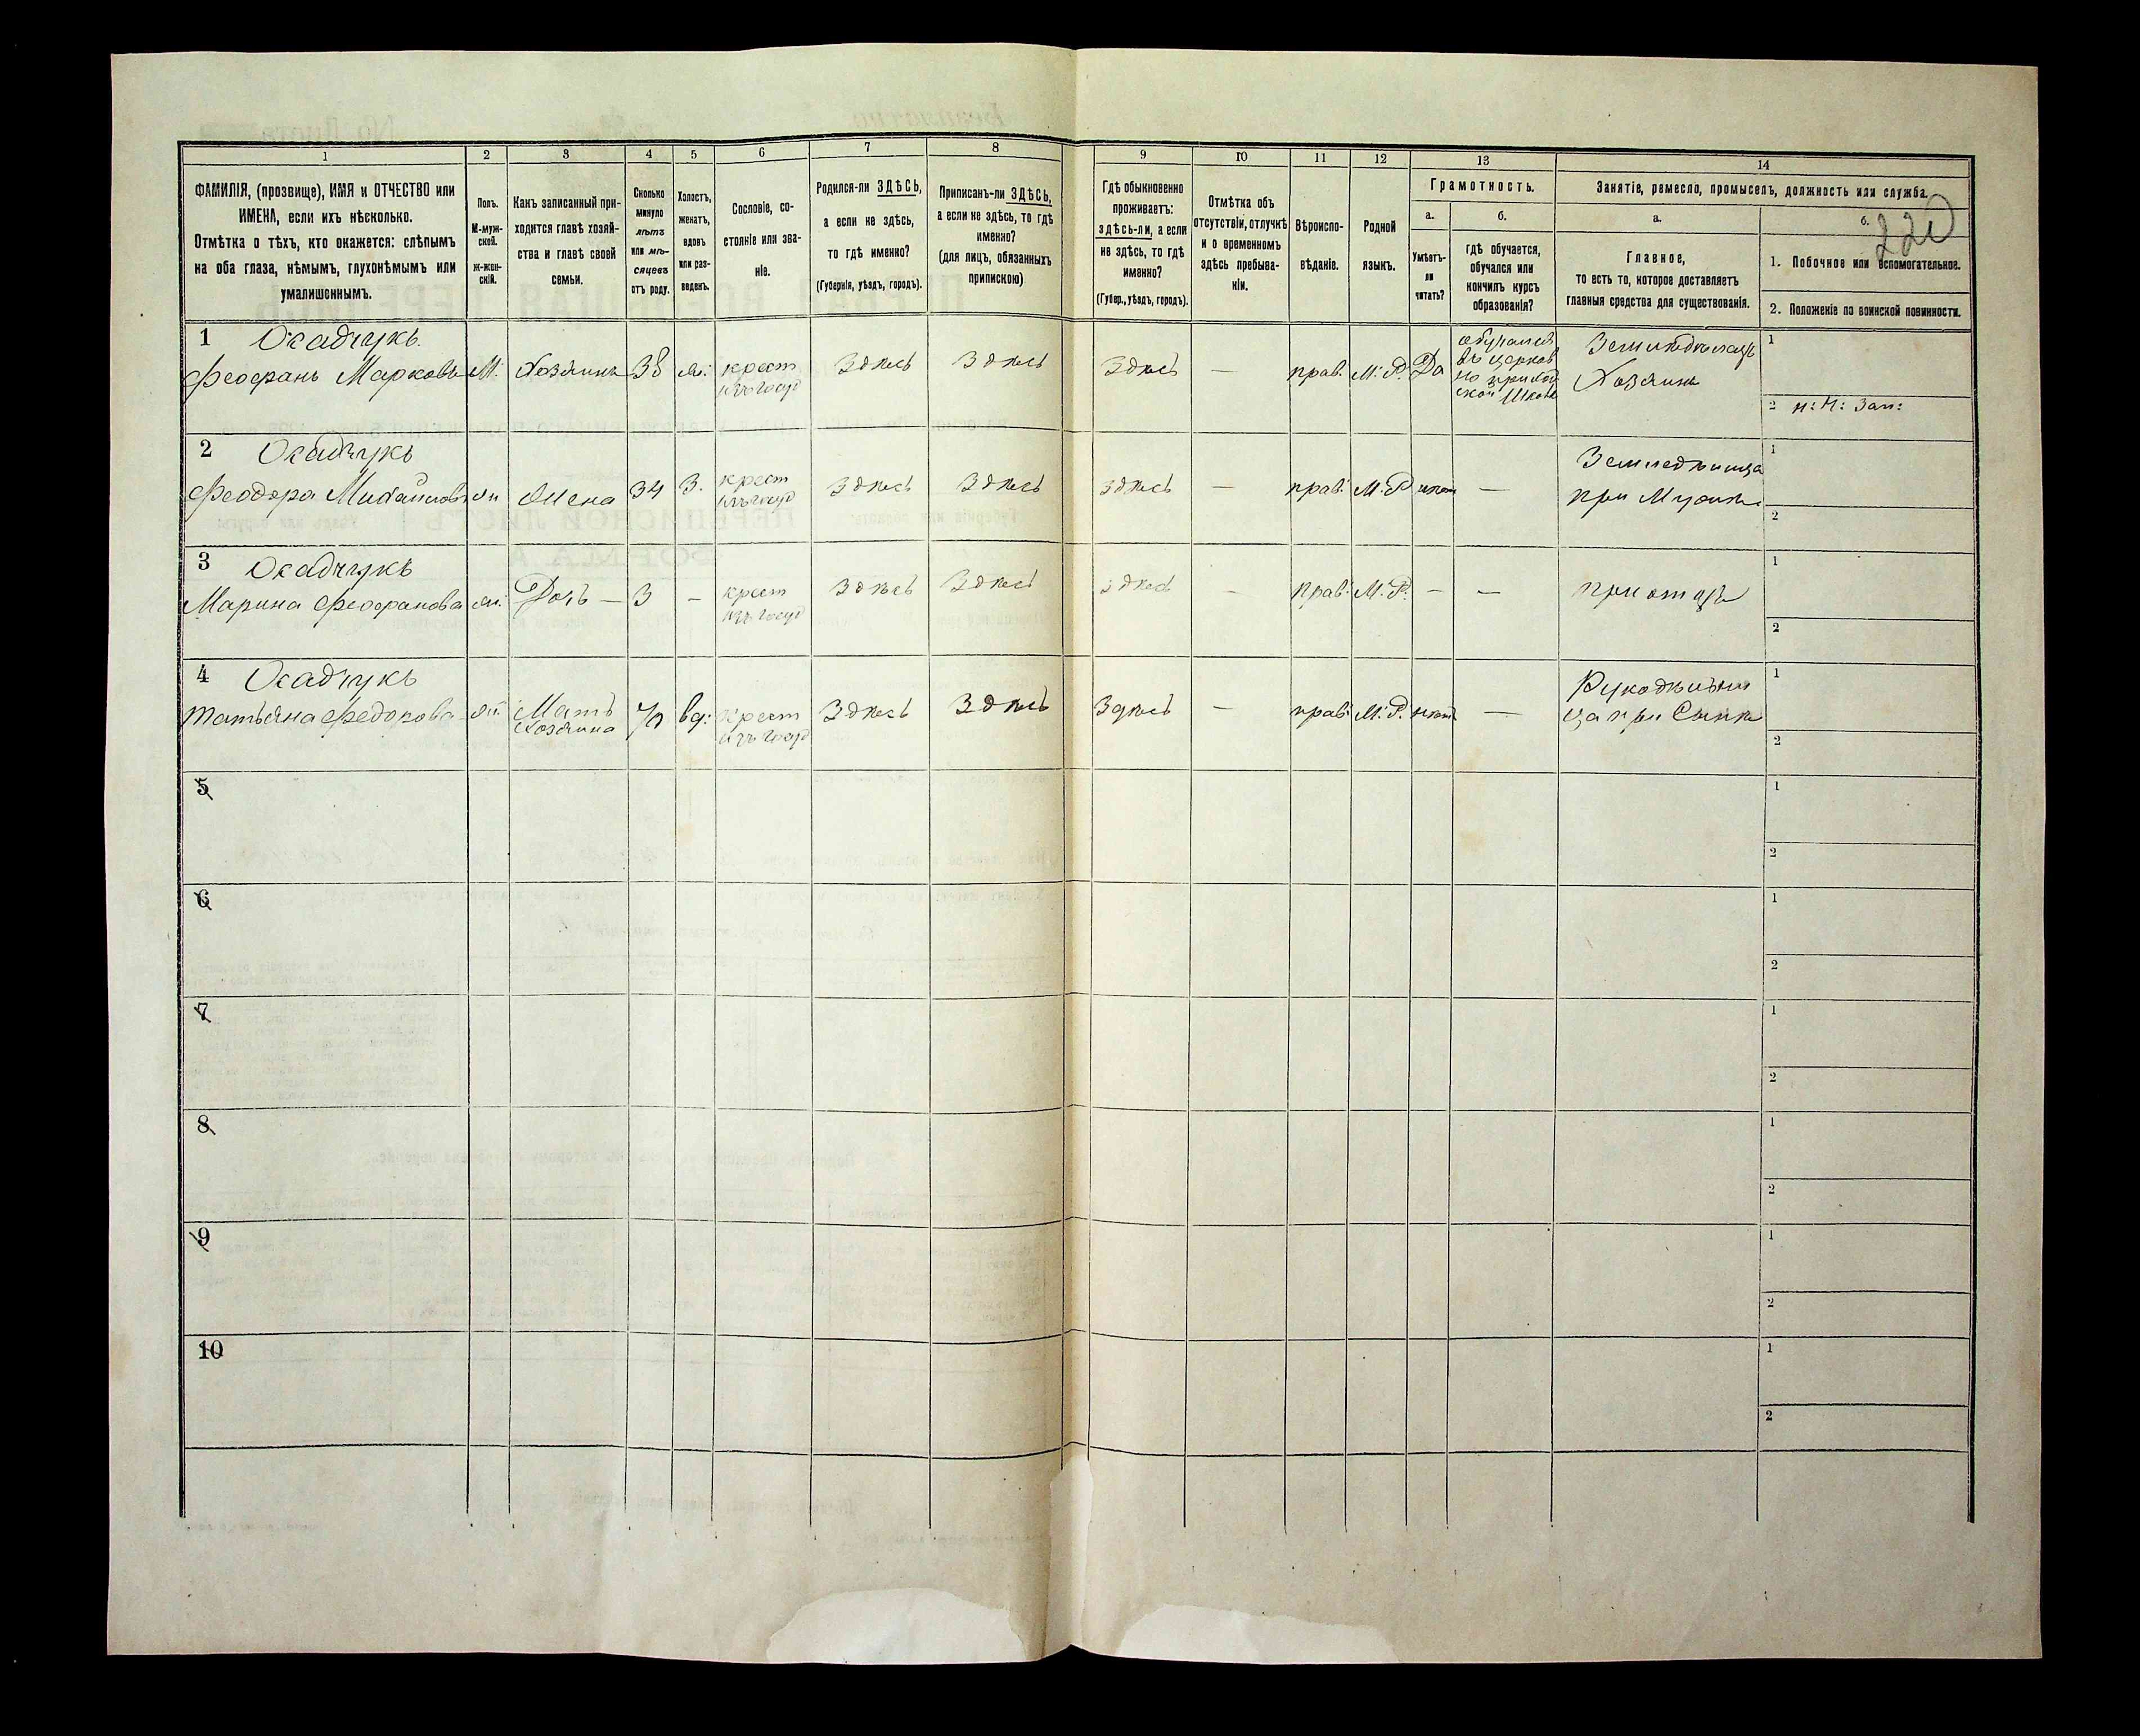 1 2 3 4 5 6 7 8 9 10 11 12 13 14
ФАМИЛІЯ, (прозвище), ИМЯ и ОТЧЕСТВО или
ИМЕНА, если ихъ нѣсколько.
Отмѣтка о тѣхъ, кто окажется: слѣпымъ
на оба глаза, нѣмымъ, глухонѣмымъ или
умалишеннымъ.
Полъ.
М-муж-
ской.
ж-жен-
скій.
Какъ записанный при-
ходится главѣ хозяй-
ства и главѣ своей
семьи.
Сколько
минуло
лѣтъ
или мѣ-
сяцевъ
отъ роду.
Холостъ,
женатъ,
вдовъ
или раз-
веденъ.
Сословіе, со-
стояніе или зва-
ніе.
Родился-ли ЗДѢСЬ,
а если не здѣсь,
то гдѣ именно?
(Губернія, уѣздъ, городъ).
Приписанъ-ли ЗДѢСЬ,
а если не здѣсь, то гдѣ
именно?
(для лицъ, обязанныхъ
припискою)
Гдѣ обыкновенно
проживаетъ:
здѣсь-ли, а если
не здѣсь, то гдѣ
именно?
(Губер., уѣздъ, городъ).
Отмѣтка объ
отсутствіи, отлучкѣ
и о временномъ
здѣсь пребыва-
ніи.
Вѣроиспо-
вѣданіе.
Родной
языкъ.
Грамотность.
а.
Умѣетъ-
ли
читать?
б.
гдѣ обучается,
обучался или
кончилъ курсъ
образованія?
Занятіе, ремесло, промыселъ, должность или служба.
а.
Главное,
то есть то, которое доставляетъ
главныя средства для существованія.
б.
220
1. Побочное или вспомогательное.
2. Положеніе по воинской повинности.
1 Осадчукъ
Феофанъ Марковъ М. Хозяинъ 38 ж. крест изъ госуд Здѣсь Здѣсь Здѣсь — прав. М. Р. Да
обучался
въ церков
но приход
ской школѣ
Земледѣлецъ
Хозяинъ
1
2 н: ч: зап:
2 Осадчукъ
Феодора Михайлова ж Жена 34 З. крест изъ госуд Здѣсь Здѣсь Здѣсь — прав: М. Р нѣтъ —
Земледѣлица
при Мужѣ
1
2
3 Осадчукъ
Марина Феофанова ж. Дочь — 3 — крест изъ госуд Здѣсь Здѣсь Здѣсь — прав: М. Р. — — при отцѣ
1
2
4 Осадчукъ
Татьяна Федорова ж. Мать Хозяина 70 вд: крест изъ госуд Здѣсь Здѣсь Здѣсь — прав: М. Р. нѣтъ —
Рукодѣльни
ца при Сынѣ
1
2
5 1
2
6 1
2
7 1
2
8 1
2
9 1
2
10 1
2